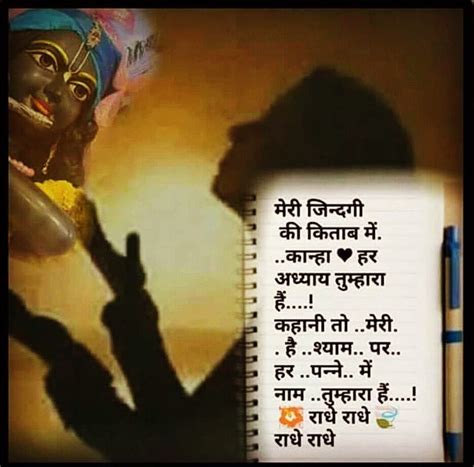 मेरी जिन्दगी
की किताब में.
..कान्हा ♥ हर
अध्याय तुम्हारा
हैं....!
कहानी तो ..मेरी.
. है ..श्याम.. पर..
हर ..पन्ने.. में
नाम ..तुम्हारा हैं....!
राधे राधे
राधे राधे